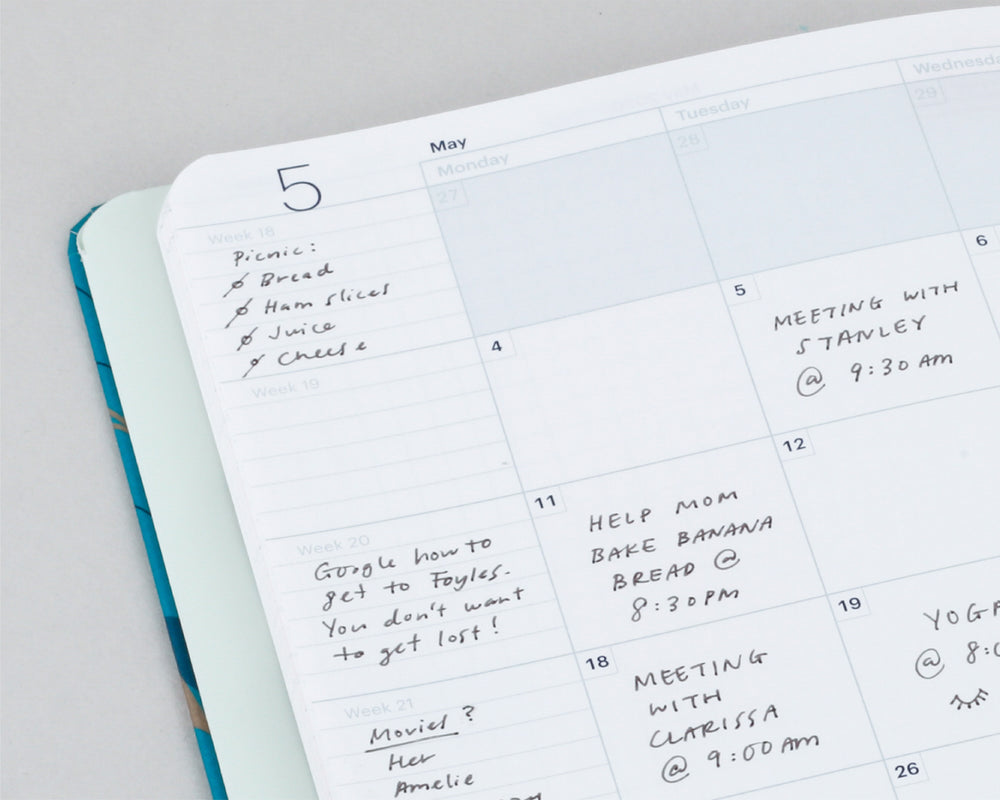 5
May
Monday
Tuesday
Wednesday
27
28
29
Week 18
Picnic:
Bread
Ham slices
Juice
Cheese
4
5
MEETING WITH
STANLEY
@ 9:30 AM
6
Week 19
11
HELP MOM
BAKE BANANA
BREAD @
8:30PM
12
Week 20
Google how to
get to Foyles.
You don't want
to get lost!
18
MEETING
WITH
CLARISSA
@ 9:00 AM
19
YOGA
@ 8:
Week 21
Movies?
Her
Amelie
26